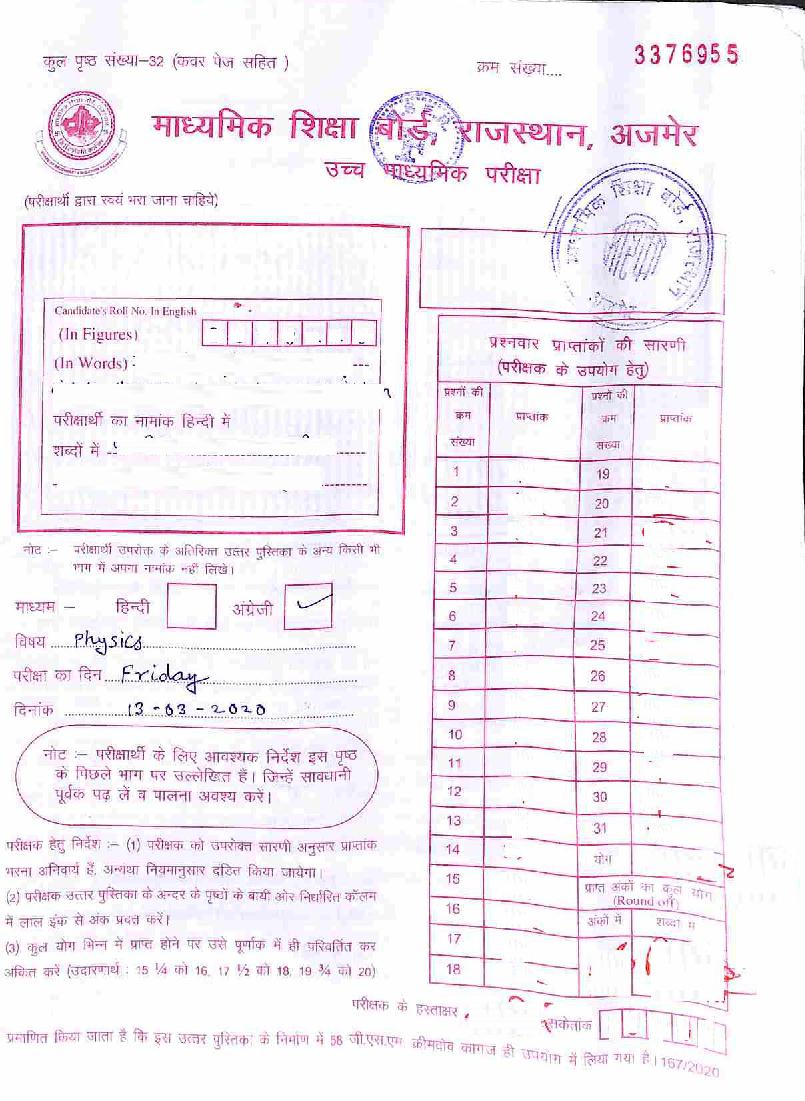 कुल पृष्ठ संख्या-32 (कवर पेज सहित )
क्रम संख्या....
3376955
माध्यमिक शिक्षा बोर्ड, राजस्थान, अजमेर
उच्च माध्यमिक परीक्षा
(परीक्षार्थी द्वारा स्वयं भरा जाना चाहिये)
Candidate's Roll No. In English
(In Figures)
(In Words)
परीक्षार्थी का नामांक हिन्दी में
शब्दों में
नोट :- परीक्षार्थी उपरोक्त के अतिरिक्त उत्तर पुस्तिका के अन्य किसी भी
भाग में अपना नामांक नहीं लिखें।
माध्यम – हिन्दी अंग्रेजी ✓
विषय Physics
परीक्षा का दिन Friday
दिनांक 13-03-2020
नोट :- परीक्षार्थी के लिए आवश्यक निर्देश इस पृष्ठ
के पिछले भाग पर उल्लेखित हैं। जिन्हें सावधानी
पूर्वक पढ़ लें व पालना अवश्य करें।
परीक्षक हेतु निर्देश :– (1) परीक्षक को उपरोक्त सारणी अनुसार प्राप्तांक
भरना अनिवार्य हैं, अन्यथा नियमानुसार दंडित किया जायेगा।
(2) परीक्षक उत्तर पुस्तिका के अन्दर के पृष्ठों के बायीं ओर निर्धारित कॉलम
में लाल इंक से अंक प्रदत्त करें।
(3) कुल योग भिन्न में प्राप्त होने पर उसे पूर्णांक में ही परिवर्तित कर
अंकित करें (उदाहरणार्थ : 15 ¼ को 16, 17 ½ को 18, 19 ¾ को 20)
माध्यमिक शिक्षा बोर्ड, राजस्थान
अजमेर
प्रश्नवार प्राप्तांकों की सारणी
(परीक्षक के उपयोग हेतु)
प्रश्नों की क्रम संख्या प्राप्तांक प्रश्नों की क्रम संख्या प्राप्तांक
1 19
2 20
3 21
4 22
5 23
6 24
7 25
8 26
9 27
10 28
11 29
12 30
13 31
14 योग
15 प्राप्त अंकों का कुल योग (Round off)
16 अंकों में शब्दों में
17
18
परीक्षक के हस्ताक्षर
संकेतांक
प्रमाणित किया जाता है कि इस उत्तर पुस्तिका के निर्माण में 58 जी.एस.एम. क्रीमवोव कागज ही उपयोग में लिया गया है। 167/2020